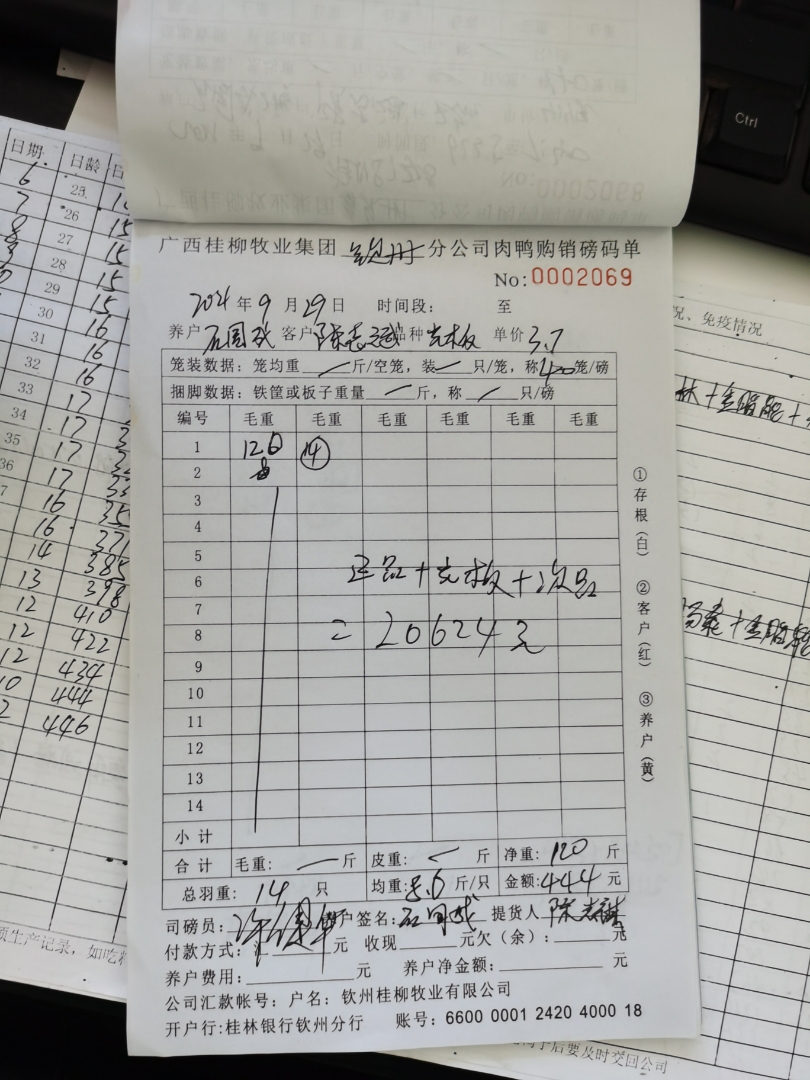 Ctrl
No:0002068
广西桂柳牧业集团 钦州 分公司肉鸭购销磅码单
No:0002069
2024年9月29日 时间段: 至
养户 石国成 客户 陈志远 品种 光板 单价 3.7
笼装数据:笼均重 斤/空笼,装 只/笼,称 笼/磅
捆脚数据:铁筐或板子重量 斤,称 只/磅
编号 毛重 毛重 毛重 毛重 毛重 毛重
1 120 14
2
3
4
5
正品+光板+次品
6
7
8 = 206274元
9
10
11
12
13
14
小计
合计 毛重: 斤 皮重: 斤 净重: 120 斤
总羽重: 14 只 均重: 8.6 斤/只 金额: 444 元
司磅员: 养户签名: 石国成 提货人
付款方式: 元 收现 元欠(余): 元
养户费用: 元 养户净金额: 元
公司汇款帐号:户名:钦州桂柳牧业有限公司
开户行:桂林银行钦州分行 账号:6600 0001 2420 4000 18
①存根(白) ②客户(红) ③养户(黄)
日期 日龄
6 25
7 26 15
8 27 15
28 15
29 15
30 16
31 16
32 16
33 17
34 17
35 17
36 17 33
16 35
16 371
14 385
13 398
12 410
12 422
12 434
10 444
2 446
况、免疫情况
生产记录,如吃料
后要及时交回公司